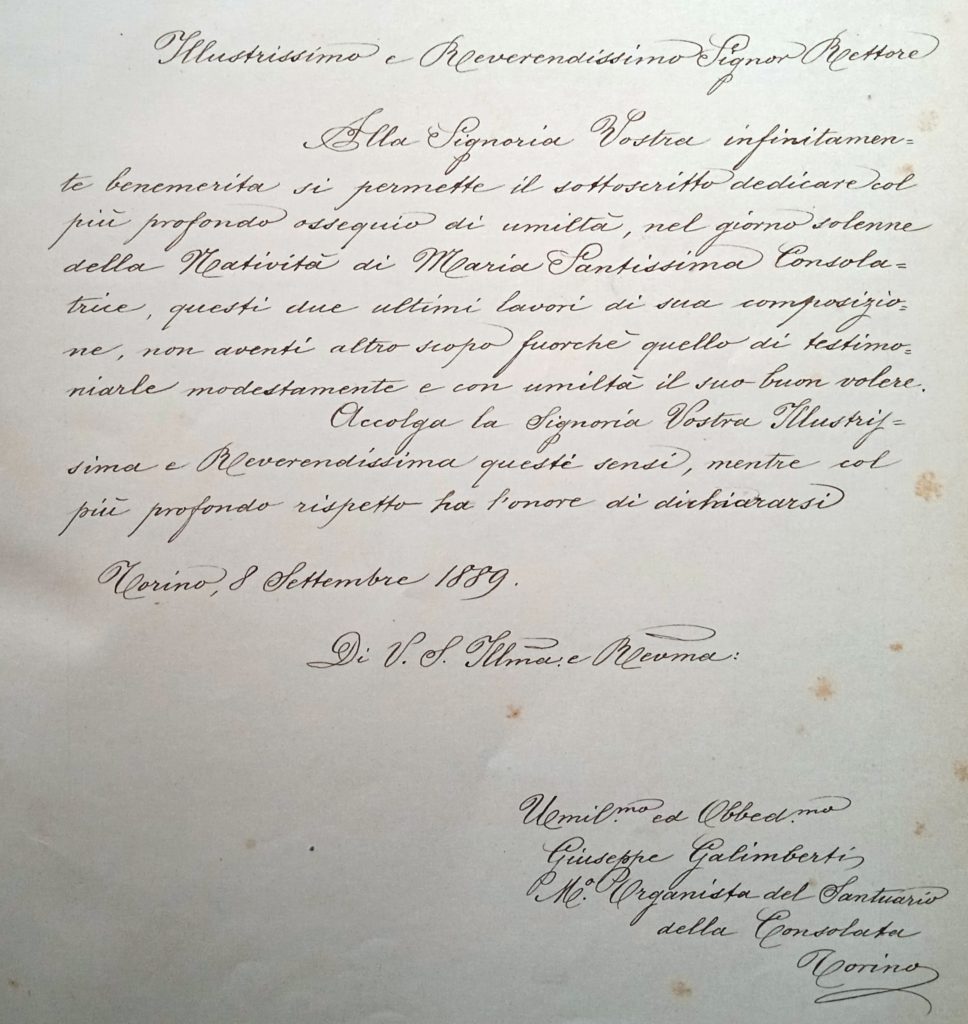 Illustrissimo e Reverendissimo Signor Rettore
Alla Signoria Vostra infinitamen=
te benemerita si permette il sottoscritto dedicare col
più profondo ossequio di umiltà, nel giorno solenne
della Natività di Maria Santissima Consola=
trice, questi due ultimi lavori di sua composizio=
ne, non aventi altro scopo fuorchè quello di testimo=
niarle modestamente e con umiltà il suo buon volere.
Accolga la Signoria Vostra Illustris=
sima e Reverendissima questi sensi, mentre col
più profondo rispetto ha l'onore di dichiararsi
Torino, 8 Settembre 1889.
Di V. S. Illma: e Revma:
Umil.mo ed Obbed.mo
Giuseppe Galimberti
Mº. Organista del Santuario
della Consolata
Torino